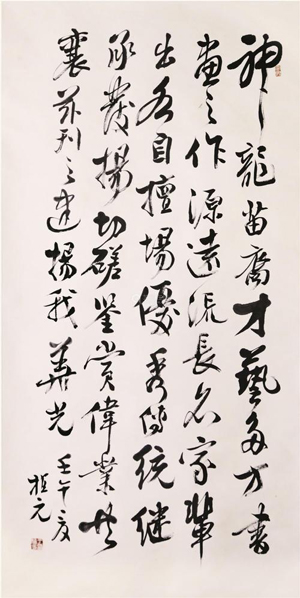 神龍苗裔才藝多方書
畫之作源遠流長名家輩
出各自擅場優秀傳統繼
承發揚切磋鉴賞偉業共
襄茲刊之建揚我華光 壬午夏
植元